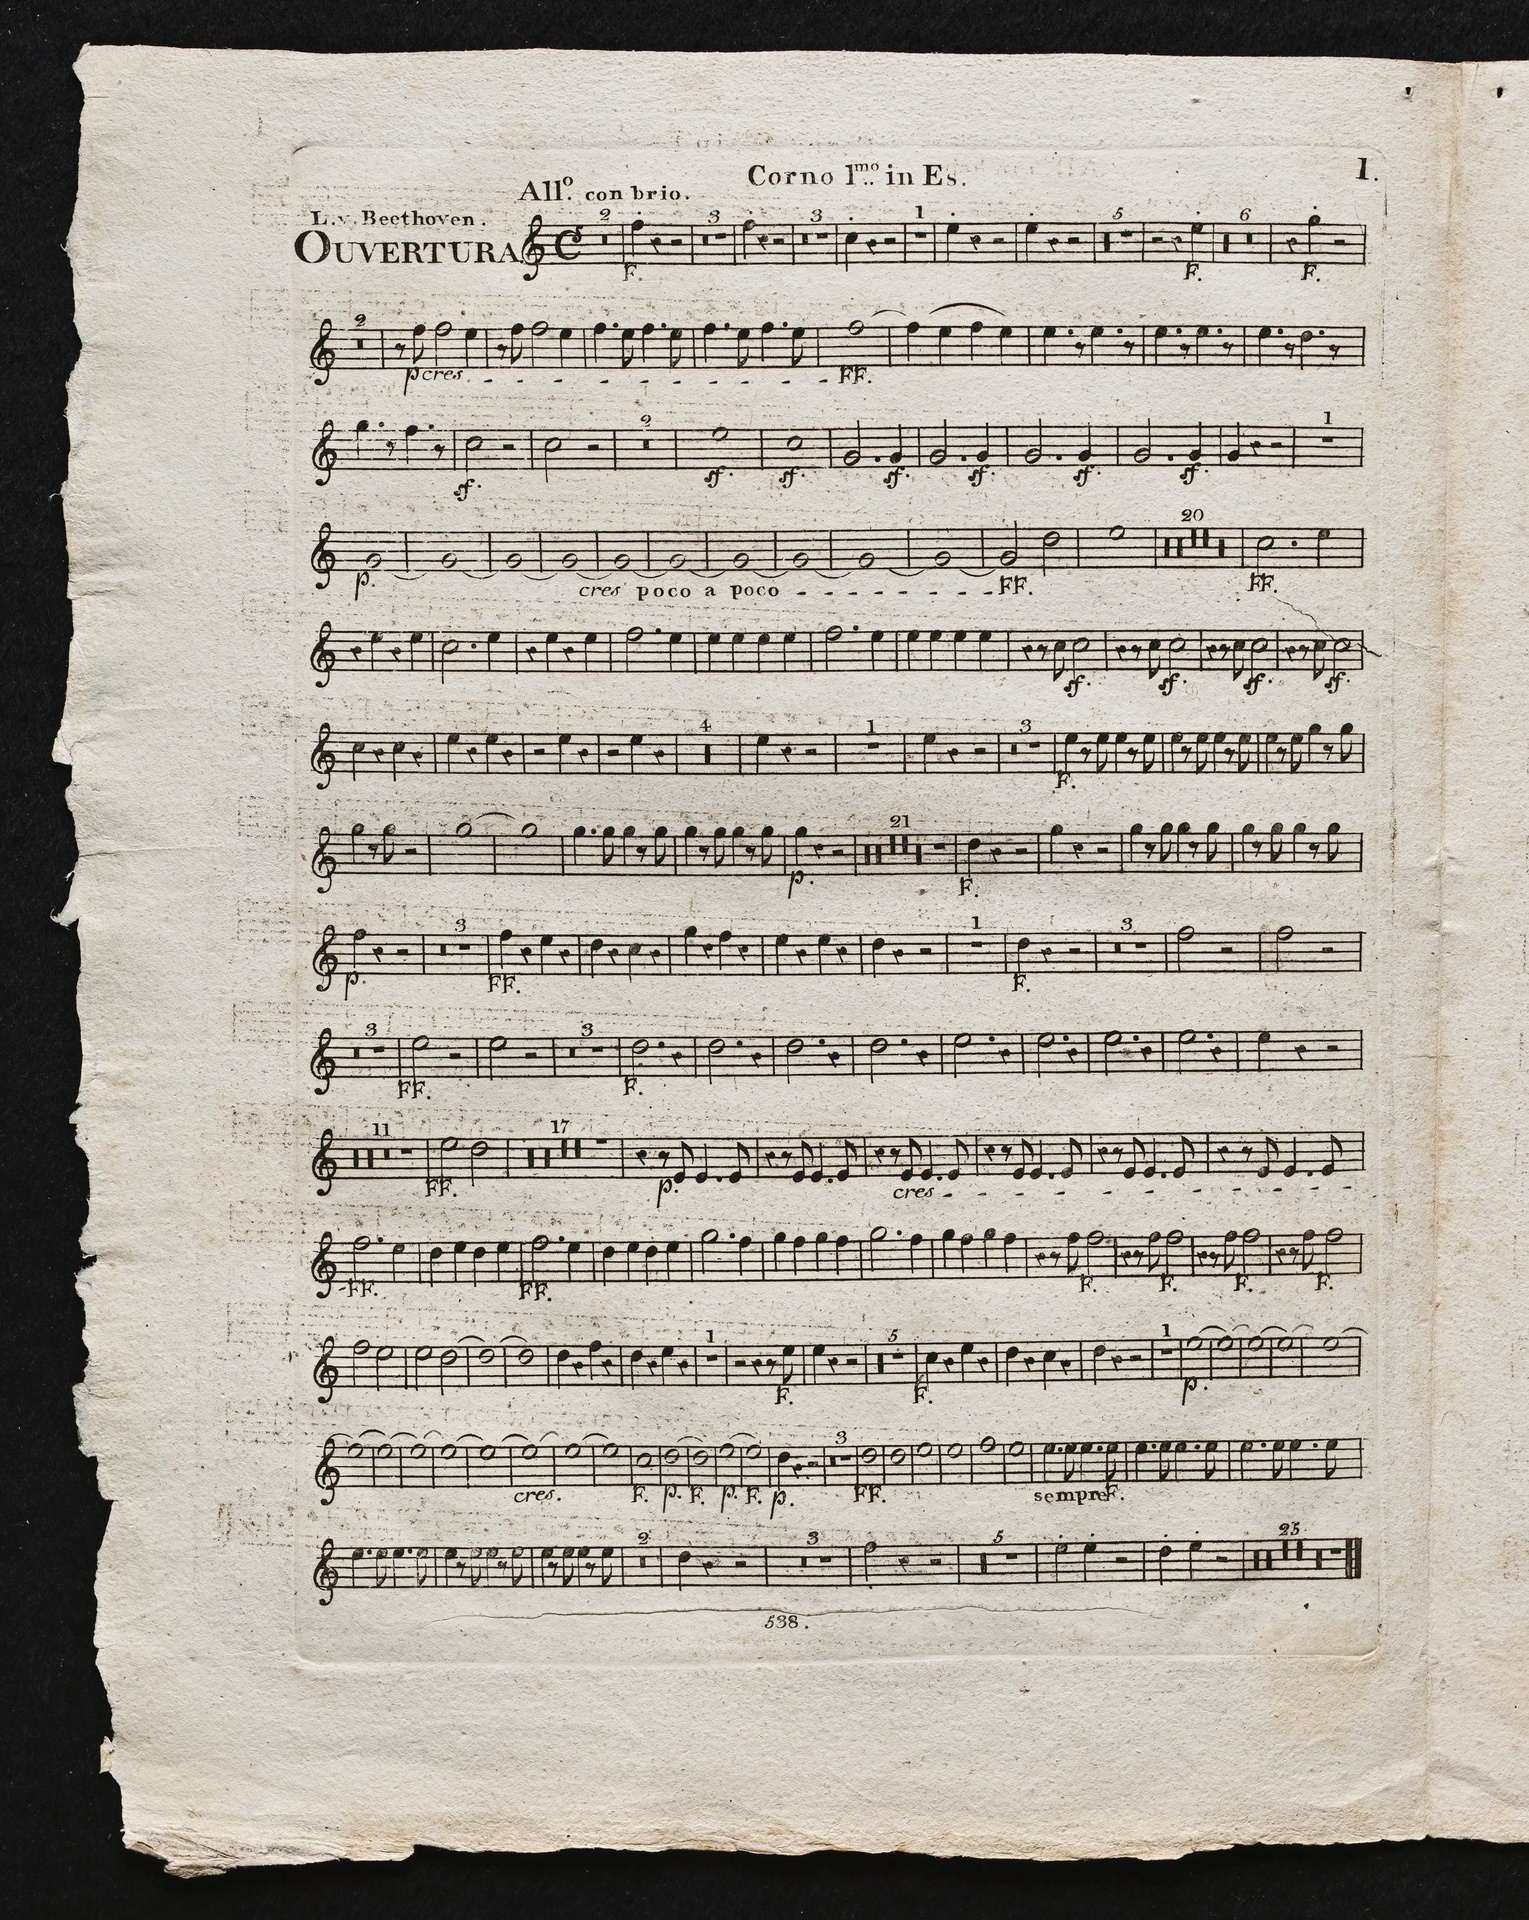 Corno 1mo. in Es.
1.
All°. con brio.
L. v. Beethoven.
OUVERTURA.
2 3 3 1 5 6
F. F. F.
2
p cres. - - - - - - - - - FF.
2 1
sf. sf. sf. sf. sf. sf. sf.
20
p. cres poco a poco - - - - - - - FF. FF.
sf. sf. sf. sf.
4 1 3
F.
21
p. F.
3 1 3
p. FF. F.
3 3
FF. F.
11 17
FF. p. cres - - - - - - - - - - -
-FF. FF. F. F. F. F.
1 5 1
F. F. p.
3
cres. F. p. F. p. F. p. FF. sempre F.
2 3 5 25
538.